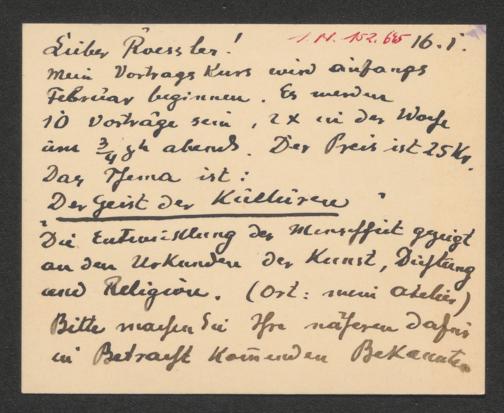 I N. 152.665 16. I.
Lieber Roessler!
mein Vortrags Kurs wird anfangs
Februar beginnen. Es werden
10 Vorträge sein, 2 x in der Woche
um ¾ 9h abends. Der Preis ist 25 Kr.
Das Thema ist:
"Der Geist der Kulturen"
Die Entwicklung der Menschheit gezeigt
an den Urkunden der Kunst, Dichtung
und Religion. (Ort: mein Atelier)
Bitte machen Sie Ihre näheren dafür
in Betracht kommenden Bekannten